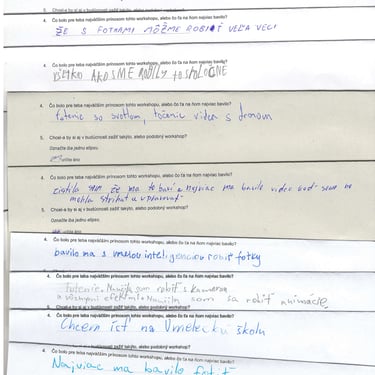 5. Chcel-a by si aj v budúcnosti zažiť takýto, alebo podobný workshop?
4. Čo bolo pre teba najväčším prínosom tohto workshopu, alebo čo ťa na ňom najviac bavilo?
ŽE S FOTKAMI MÔŽME ROBIŤ VEĽA VECÍ
4. Čo bolo pre teba najväčším prínosom tohto workshopu, alebo čo ťa na ňom najviac bavilo?
VŠETKO AKO SME ROBILI TO SPOLOČNE
4. Čo bolo pre teba najväčším prínosom tohto workshopu, alebo čo ťa na ňom najviac bavilo?
fotenie so svetlom, točenie videa s dronom
5. Chcel-a by si aj v budúcnosti zažiť takýto, alebo podobný workshop?
Označte iba jednu elipsu.
určite áno
4. Čo bolo pre teba najväčším prínosom tohto workshopu, alebo čo ťa na ňom najviac bavilo?
zistila som že ma to baví a najviac ma bavilo video keď sme ho
mohli strihať a upravovať
5. Chcel-a by si aj v budúcnosti zažiť takýto, alebo podobný workshop?
Označte iba jednu elipsu.
určite áno
4. Čo bolo pre teba najväčším prínosom tohto workshopu, alebo čo ťa na ňom najviac bavilo?
bavilo ma s umelou inteligenciou robiť fotky
4. Čo bolo pre teba najväčším prínosom tohto workshopu, alebo čo ťa na ňom najviac bavilo?
Fotenie. Naučila som robiť s kamerou
a rôznymi efektmi. Naučila som sa robiť animácie.
4. Čo bolo pre teba najväčším prínosom tohto workshopu, alebo čo ťa na ňom najviac bavilo?
Chcem ísť na Umeleckú školu
4. Čo bolo pre teba najväčším prínosom tohto workshopu, alebo čo ťa na ňom najviac bavilo?
Najviac ma bavilo fotiť